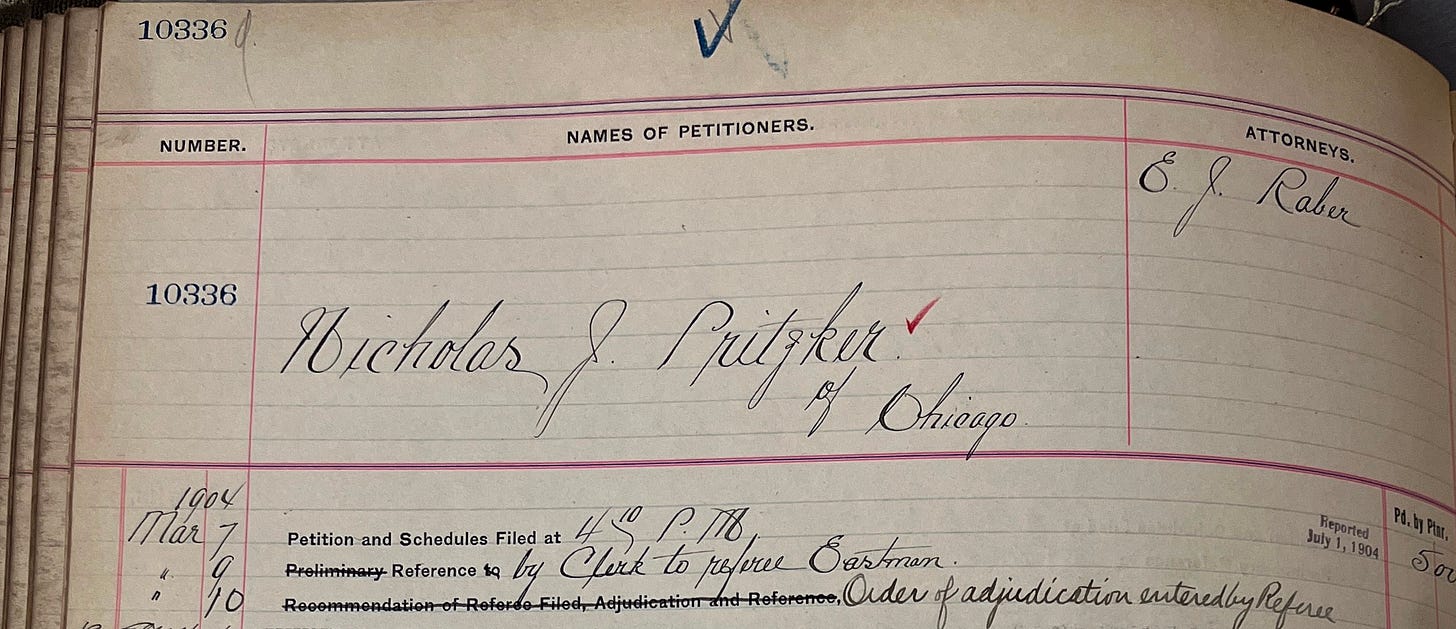 10336
NUMBER. NAMES OF PETITIONERS. ATTORNEYS.
E. J. Raber
10336
Nicholas J. Pritzker.
of Chicago.
1904
Mar 7 Petition and Schedules Filed at 4 10 P. M.
Reported
July 1, 1904
Pd. by Ptnr.
" 9 Preliminary Reference to by Clerk to referee Eastman.
" 10 Recommendation of Referee Filed, Adjudication and Reference, Order of adjudication entered by Referee